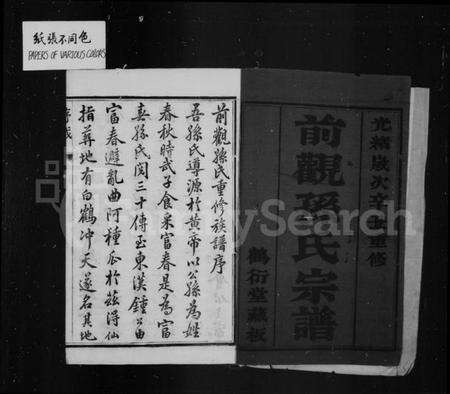 紙張不同色
PAPERS OF VARIOUS COLORS
光緒歲次辛丑重修
前觀孫氏宗譜
鶴衍堂藏板
前觀孫氏重修族譜序
吾孫氏導源於黃帝以公孫為姓
春秋時武子食采富春是為富
春孫氏閱三十傳至東漢鍾公由
富春避亂曲阿種瓜於茲得仙
指葬地有白鶴沖天遂名其地
MySearch